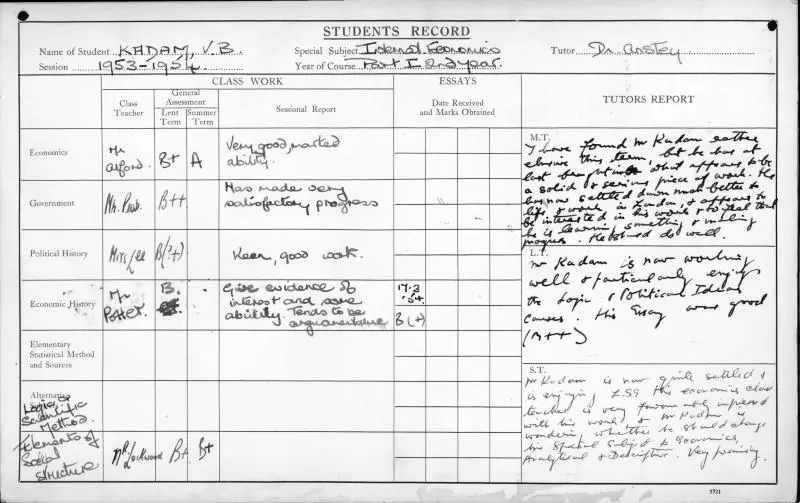 STUDENTS RECORD
Name of Student KADAM, V.B. Special Subject Internat. Economics Tutor Dr Anstey
Session 1953-1954 Year of Course Part I 2nd year.
CLASS WORK ESSAYS TUTORS REPORT
Class Teacher General Assessment Lent Term Summer Term Sessional Report Date Received and Marks Obtained
Economics Mr Alford. B+ A Very good, marked ability.
Government Mr. Pear. B++ Has made very satisfactory progress
Political History Miss Lee B(?+) Keen, good work.
Economic History Mr Potter. B. Give evidence of interest and some ability. Tends to be argumentative 17.3.54. B(+)
Elementary Statistical Method and Sources
Alternative
Logic & Scientific Method.
Elements of Social Structure Mr Lockwood B+ B+
M.T.
I have found Mr Kadam rather
elusive this term, but he has at
last brought in what appears to be
a solid & serious piece of work. He
has now settled down much better to
life & work in London, & appears to
be interested in his work & to feel that
he is learning something & making
progress. He should do well.
L.T.
Mr Kadam is now working
well & particularly enjoys
the Logic & Political Ideas
courses. His Essay was good
(B++)
S.T.
Mr Kadam is now quite settled &
is enjoying LSE. His economics class
teacher is very favourably impressed
with his work & Mr Kadam is
wondering whether he should change
his Special Subject to Economics,
Analytical & Descriptive. Very promising.
5721